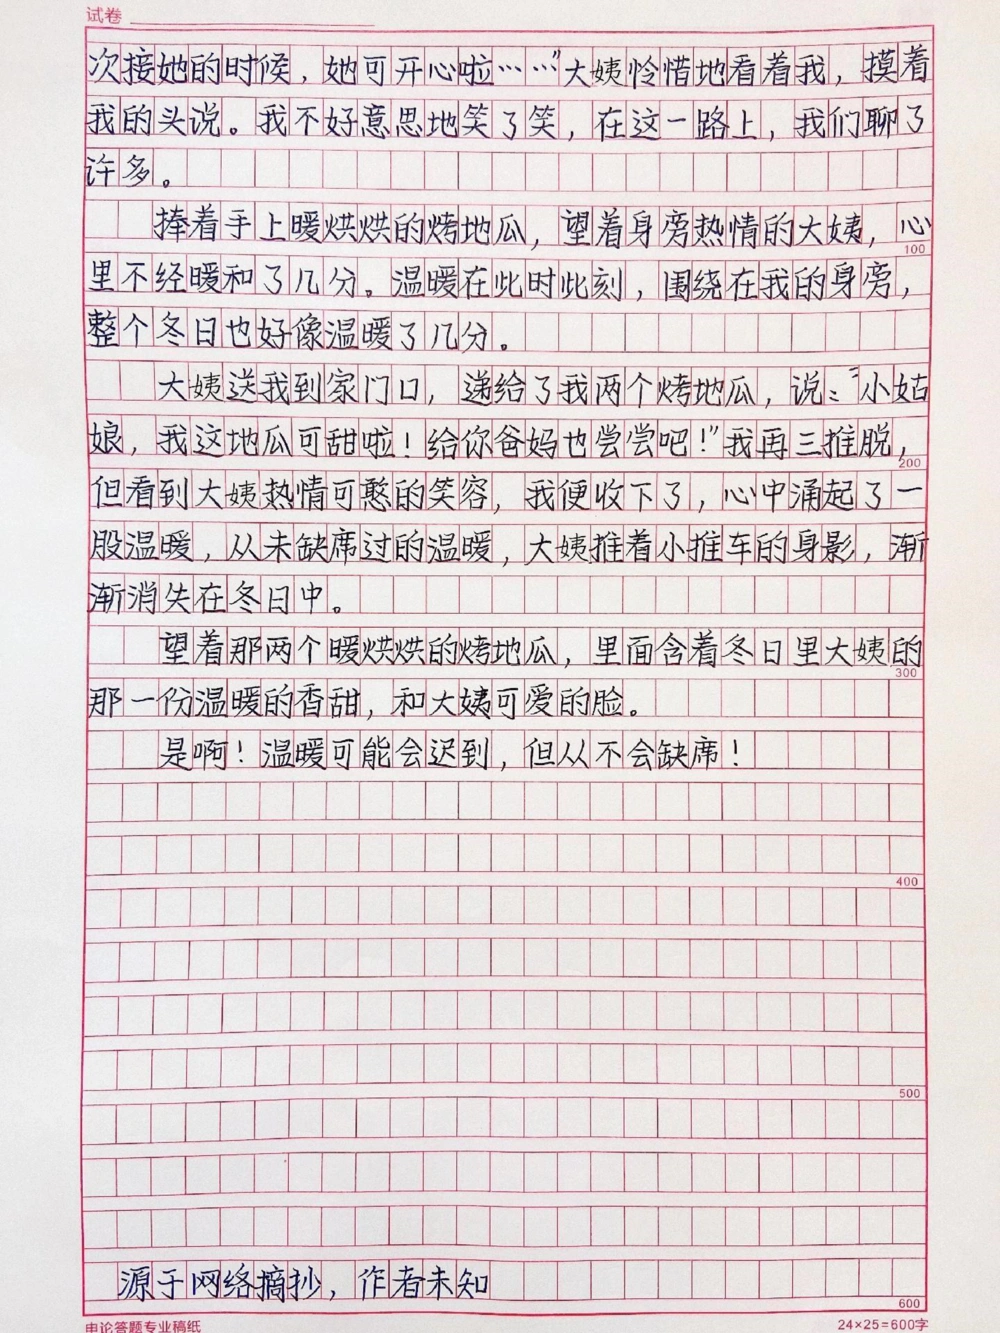 试卷
次接她的时候，她可开心啦……”大姨怜惜地看着我，摸着
我的头说。我不好意思地笑了笑，在这一路上，我们聊了
许多。
捧着手上暖烘烘的烤地瓜，望着身旁热情的大姨，心
100
里不经暖和了几分。温暖在此时此刻，围绕在我的身旁，
整个冬日也好像温暖了几分。
大姨送我到家门口，递给了我两个烤地瓜，说：“小姑
娘，我这地瓜可甜啦！给你爸妈也尝尝吧！”我再三推脱，
200
但看到大姨热情可憨的笑容，我便收下了，心中涌起了一
股温暖，从未缺席过的温暖，大姨推着小推车的身影，渐
渐消失在冬日中。
望着那两个暖烘烘的烤地瓜，里面含着冬日里大姨的
300
那一份温暖的香甜，和大姨可爱的脸。
是啊！温暖可能会迟到，但从不会缺席！
400
500
源于网络摘抄，作者未知
600
申论答题专业稿纸
24×25=600字